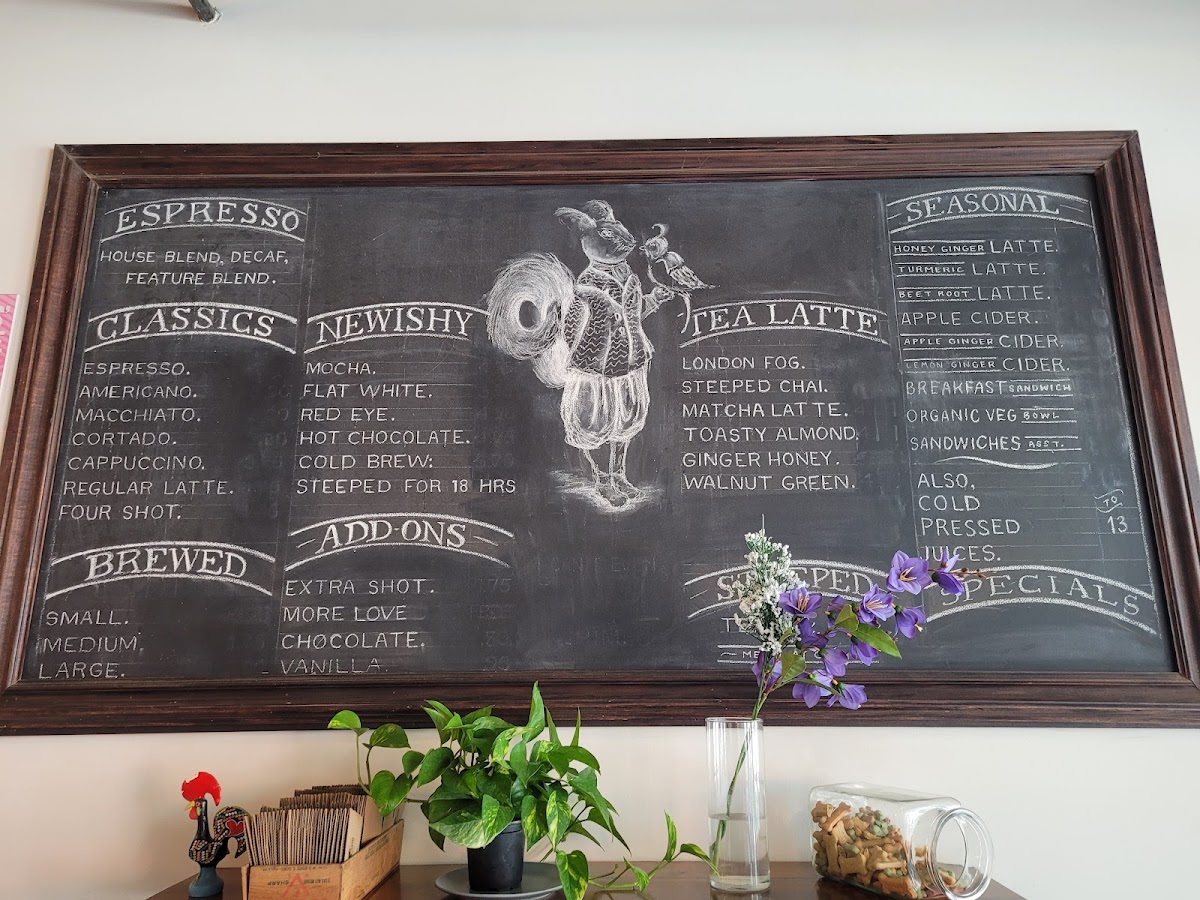 ESPRESSO
HOUSE BLEND, DECAF,
FEATURE BLEND.
CLASSICS
ESPRESSO.
AMERICANO.
MACCHIATO.
CORTADO.
CAPPUCCINO.
REGULAR LATTE.
FOUR SHOT.
BREWED
SMALL.
MEDIUM.
LARGE.
NEWISHY
MOCHA.
FLAT WHITE.
RED EYE.
HOT CHOCOLATE.
COLD BREW:
STEEPED FOR 18 HRS
ADD-ONS
EXTRA SHOT.
MORE LOVE
CHOCOLATE.
VANILLA.
TEA LATTE
LONDON FOG.
STEEPED CHAI.
MATCHA LATTE.
TOASTY ALMOND.
GINGER HONEY.
WALNUT GREEN.
SEASONAL
HONEY GINGER LATTE.
TURMERIC LATTE.
BEET ROOT LATTE.
APPLE CIDER.
APPLE GINGER CIDER.
LEMON GINGER CIDER.
BREAKFAST SANDWICH
ORGANIC VEG BOWL
SANDWICHES ASST.
ALSO,
COLD
PRESSED TO 13
JUICES.
SPECIALS